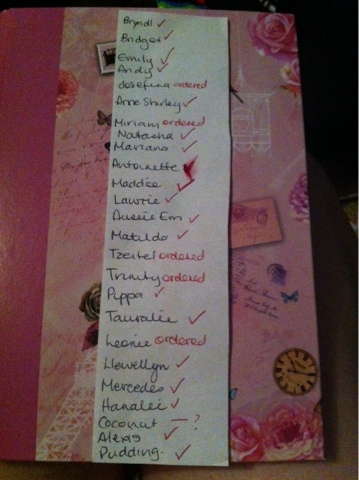 Bryndl ✓
Bridget ✓
Emily ✓
Andy ✓
Josefina ordered
Anne Shirley ✓
Miriam ordered
Natasha ✓
Mariana ✓
Antoinette ✓
Maddie ✓
Lawrie ✓
Aussie Em ✓
Matilda ✓
Tzeitel ordered
Trinity ordered
Pippa ✓
Tauralie ✓
Leonie ordered
Llewellyn ✓
Mercedes ✓
Hanalei ✓
Coconut — ?
Alexis ✓
Pudding. ✓